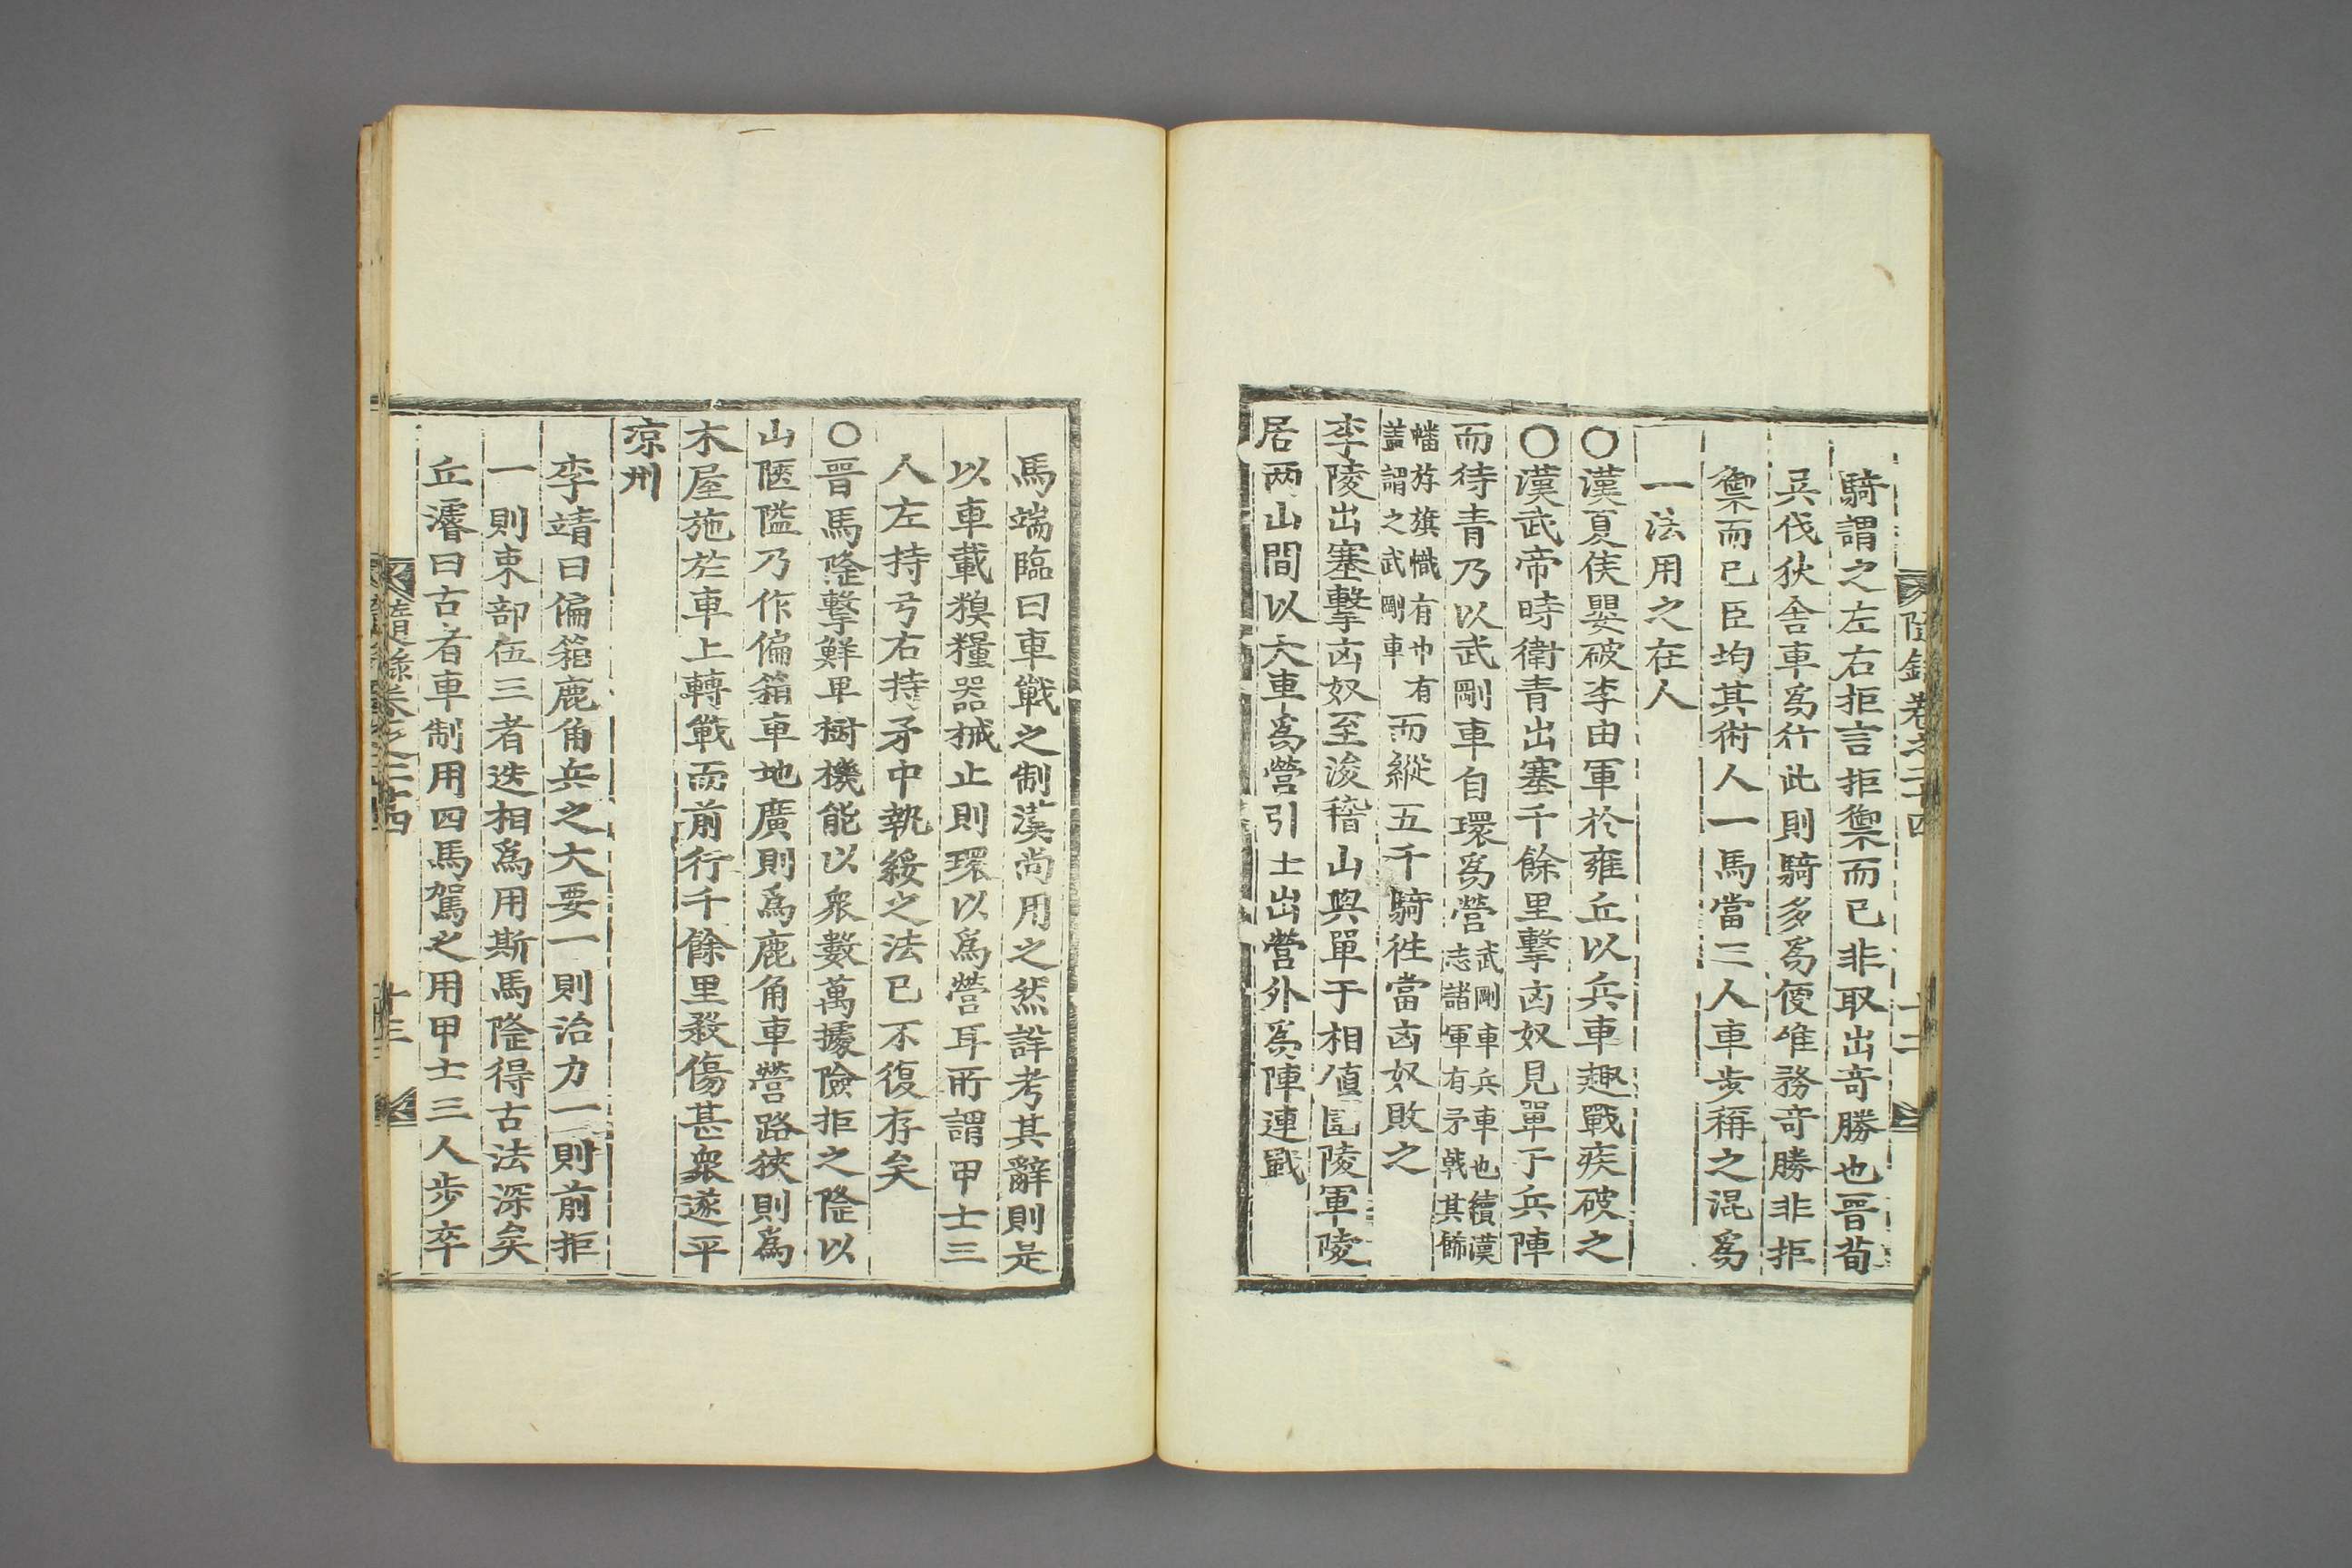 隨錄卷之二十四
十二
騎謂之左右拒言拒禦而已非取出奇勝也晋荀
吳伐狄舍車爲行此則騎多爲便唯務奇勝非拒
禦而已臣均其術人一馬當三人車步稱之混爲
一法用之在人
○漢夏侯嬰破李由軍於雍丘以兵車趣戰疾破之
○漢武帝時衛青出塞千餘里擊凶奴見單于兵陣
而待青乃以武剛車自環爲營武剛車兵車也續漢志諸軍有矛戟其飾
幡斿旗幟有巾有蓋謂之武剛車而縱五千騎往當凶奴敗之
李陵出塞擊凶奴至浚稽山與單于相値圍陵軍陵
居两山間以大車爲營引士出營外爲陣連戰
馬端臨曰車戰之制漢尚用之然詳考其辭則是
以車載糗糧器械止則環以爲營耳所謂甲士三
人左持弓右持矛中執綏之法已不復存矣
○晋馬隆擊鮮卑樹機能以衆數萬據險拒之隆以
山陿隘乃作偏箱車地廣則爲鹿角車營路狹則爲
木屋施於車上轉戰而前行千餘里殺傷甚衆遂平
凉州
李靖曰偏箱鹿角兵之大要一則治力一則前拒
一則束部伍三者迭相爲用斯馬隆得古法深矣
丘濬曰古者車制用四馬駕之用甲士三人步卒
隨錄卷之二十四
十三